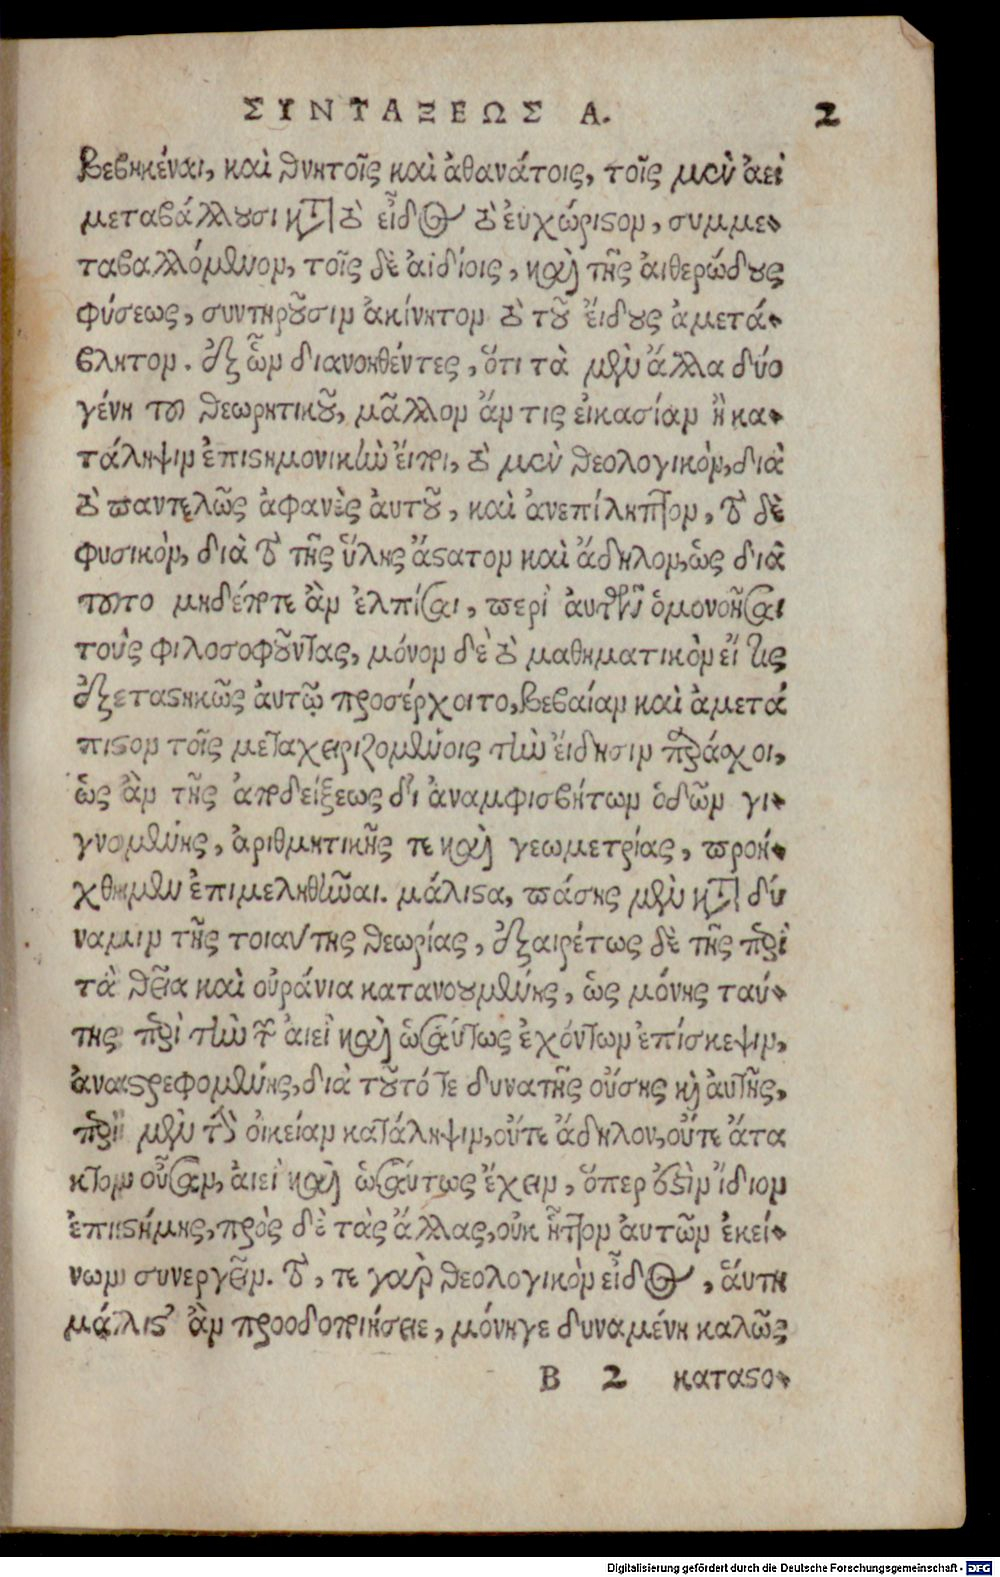 ΣΥΝΤΑΞΕΩΣ Α. 2
βεβηκέναι, καὶ θνητοῖς καὶ ἀθανάτοις, τοῖς μὲν ἀεὶ
μεταβάλλουσι κατὰ τὸ εἶδος τὸ ἐυχώριστον, συμμε-
ταβαλλόμενον, τοῖς δὲ ἀϊδίοις, καὶ τῆς ἀιθερώδους
φύσεως, συντηροῦσιν ἀκίνητον τὸ τοῦ ἔιδους ἀμετά-
βλητον. ἐξ ὧν διανοηθέντες, ὅτι τὰ μὲν ἄλλα δύο
γένη του θεωρητικοῦ, μᾶλλον ἄν τις εἰκασίαν ἢ κα-
τάληψιν ἐπιστημονικὴν ἔιποι, τὸ μὲν θεολογικὸν, διὰ
τὸ παντελῶς ἀφανὲς ἀυτοῦ, καὶ ἀνεπίληπτον, τὸ δὲ
φυσικὸν, διὰ τὸ τῆς ὕλης ἄστατον καὶ ἄδηλον, ὡς διὰ
τουτο μηδέποτε ἂν ἐλπίσαι, περὶ ἀυτῶν ὁμονοῆσαι
τοὺς φιλοσοφοῦντας, μόνον δὲ τὸ μαθηματικὸν εἴ τις
ἐξεταστικῶς ἀυτῷ προσέρχοιτο, βεβαίαν καὶ ἀμετά
πιστον τοῖς μεταχειριζομένοις τὴν ἔιδησιν παράσχοι,
ὡς ἂν τῆς ἀποδείξεως δι ἀναμφισβήτων ὁδῶν γι-
γνομένης, ἀριθμητικῆς τε καὶ γεωμετρίας, προή-
χθημεν ἐπιμεληθῆναι. μάλιστα, πάσης μὲν κατὰ δύ
ναμιν τῆς τοιαύτης θεωρίας, ἐξαιρέτως δὲ τῆς περὶ
τὰ θεῖα καὶ οὐράνια κατανοουμένης, ὡς μόνης ταύ-
της περὶ τὴν τῶν ἀιεὶ καὶ ὡσάυτως ἐχόντων ἐπίσκεψιν,
ἀναστρεφομένης, διὰ τοῦτό τε δυνατῆς οὔσης καὶ ἀυτῆς,
περὶ μὲν τὴν οἰκείαν κατάληψιν, οὔτε ἄδηλον, οὔτε ἄτα
κτον οὖσαν, ἀιεὶ καὶ ὡσάυτως ἔχειν, ὅπερ ἐστὶν ἴδιον
ἐπιστήμης, πρὸς δὲ τὰς ἄλλας, οὐκ ἧττον ἀυτῶν ἐκεί-
νων συνεργεῖν. τό, τε γὰρ θεολογικὸν εἶδος, ἅυτη
μάλιστ' ἂν προοδοποιήσειε, μόνηγε δυναμένη καλῶς
B 2 καταστο-
Digitalisierung gefördert durch die Deutsche Forschungsgemeinschaft - DFG